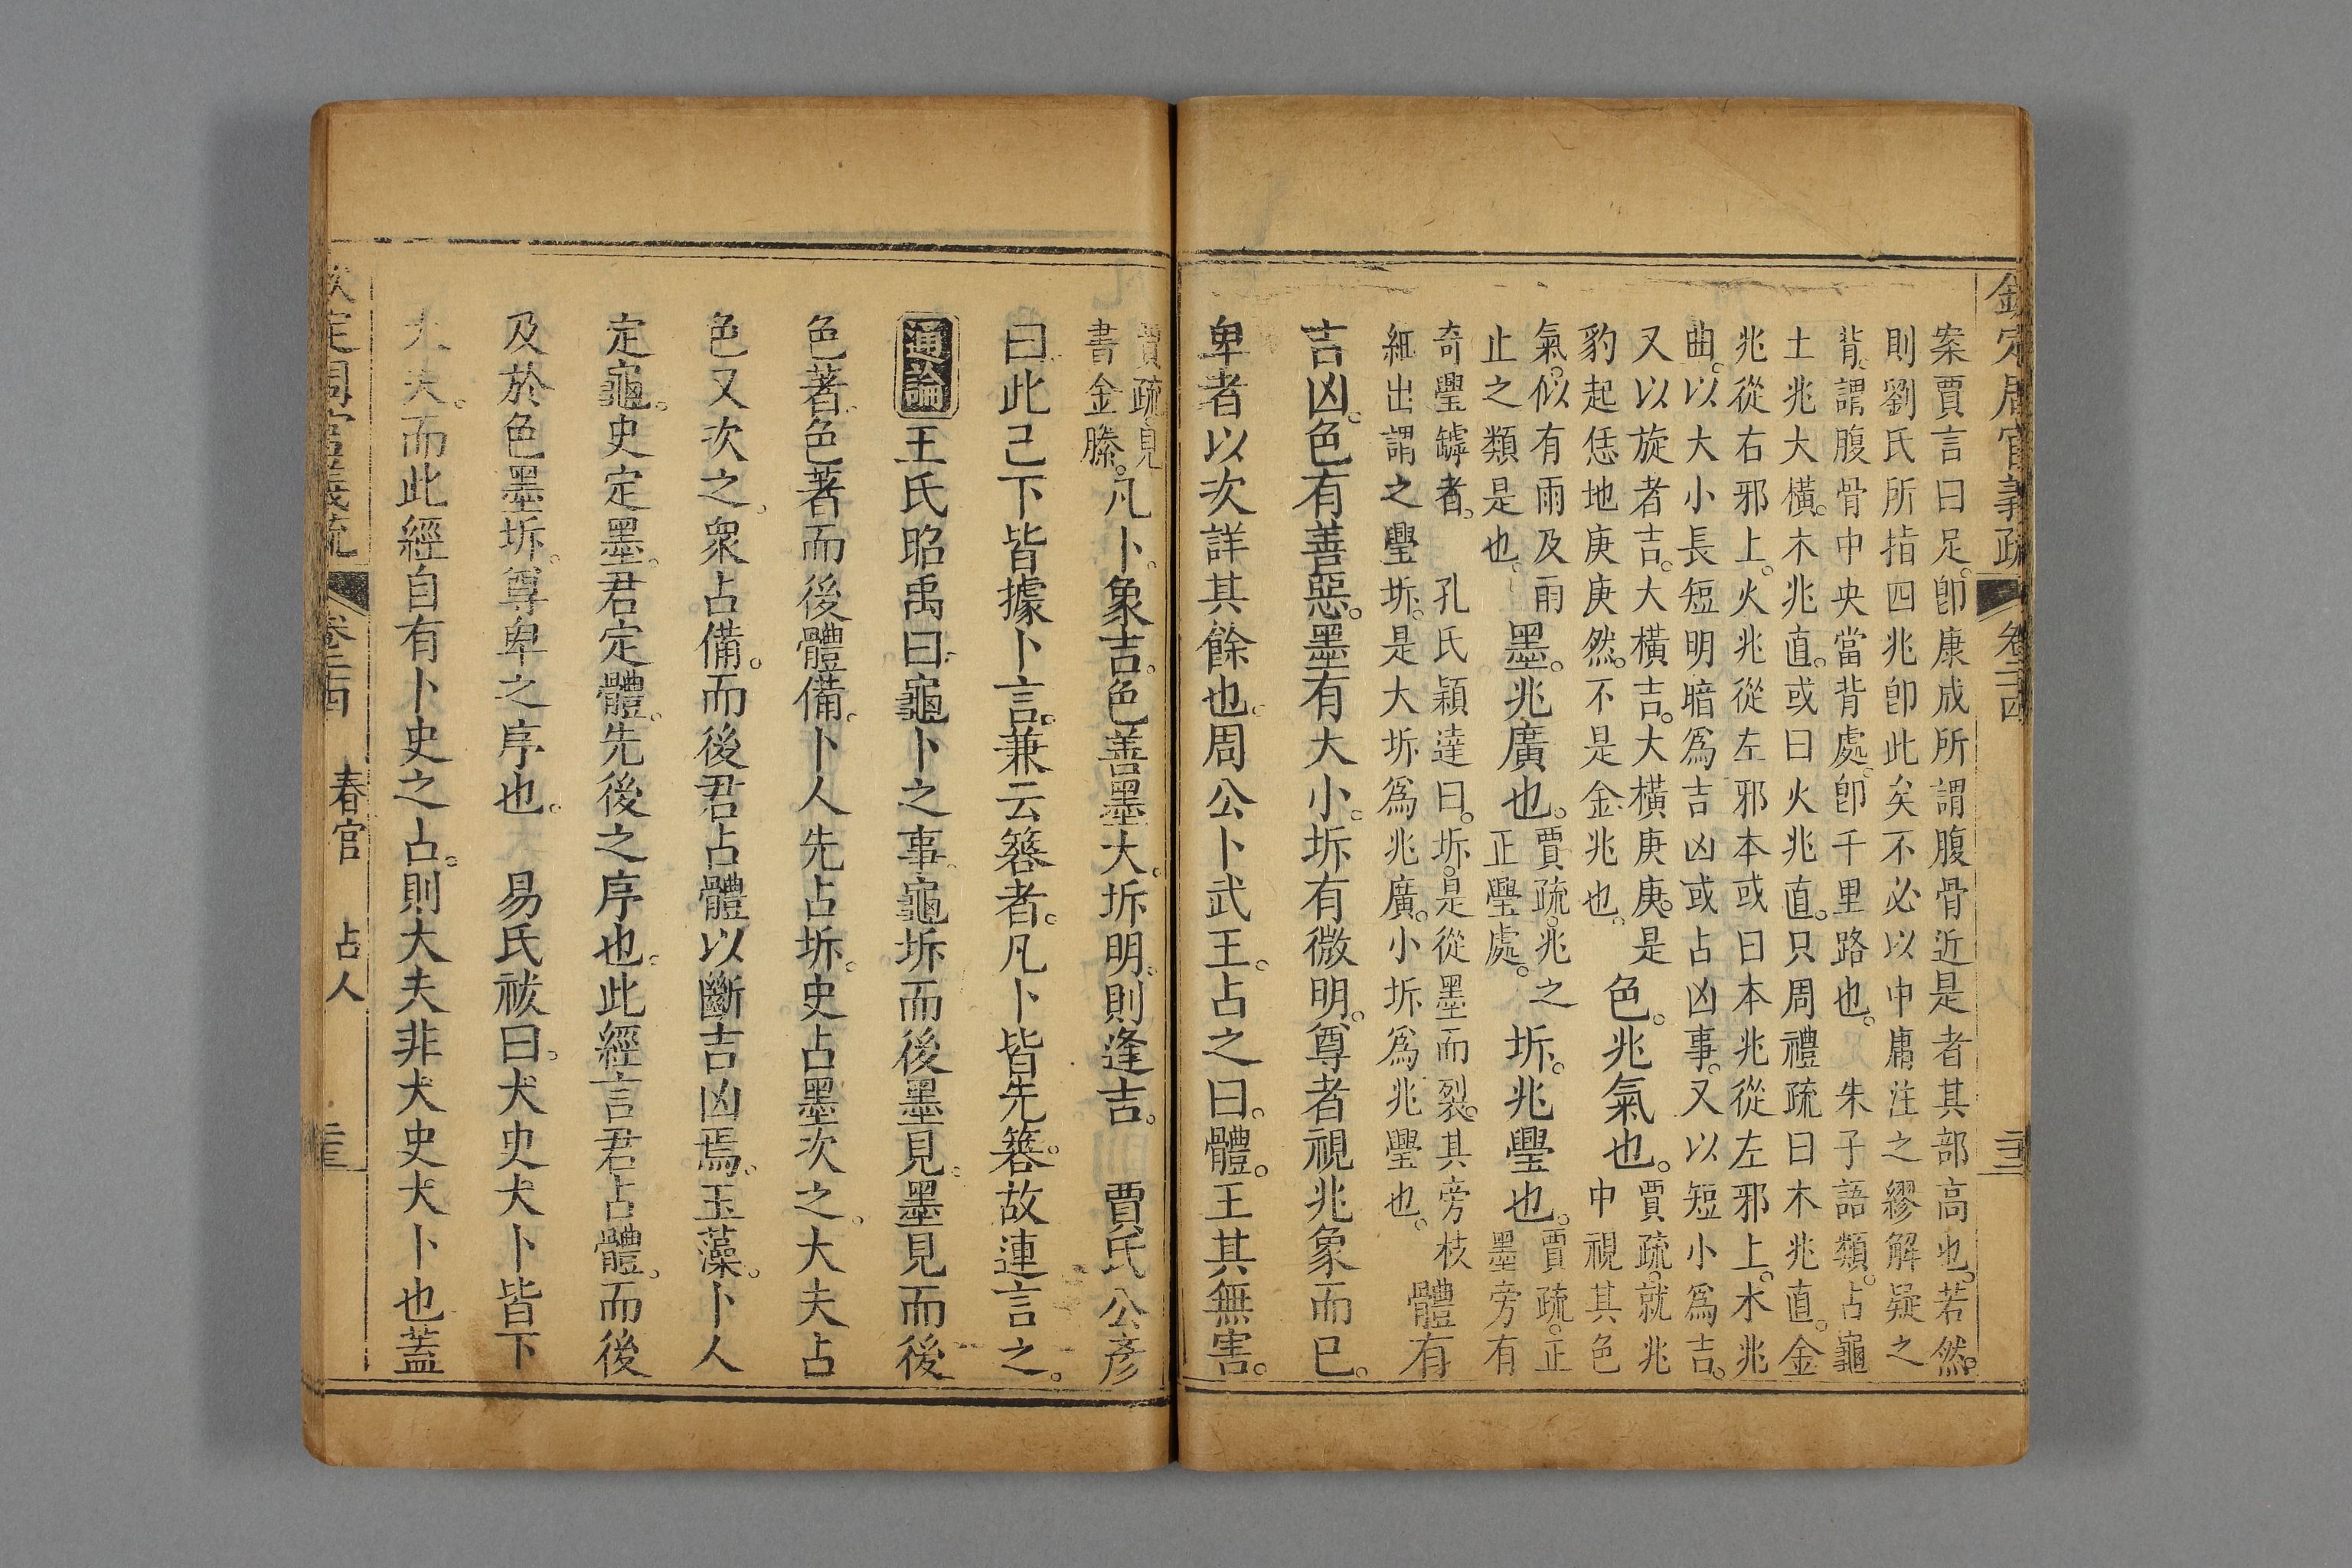 欽定周官義疏 卷二十四 三十二
案賈言曰足。卽康成所謂腹骨近是者其部高也。若然。
則劉氏所指四兆卽此矣不必以中庸注之繆解疑之
背。謂腹骨中央當背處。卽千里路也。 朱子語類。占龜
土兆大橫。木兆直。或曰火兆直。只周禮疏曰木兆直。金
兆從右邪上。火兆從左邪本或曰本兆從左邪上。水兆
曲。以大小長短明暗爲吉凶或占凶事。又以短小爲吉。
又以旋者吉。大橫吉。大橫庚庚。是
豹起恁地庚庚然。不是金兆也。
色。兆氣也。
賈疏。就兆
中視其色
氣。似有雨及雨
止之類是也。
墨。兆廣也。
賈疏。兆之
正舋處。
坼。兆舋也。
賈疏。正
墨旁有
奇舋罅者。 孔氏穎達曰。坼。是從墨而裂。其旁枝
細出謂之舋坼。是大坼爲兆廣。小坼爲兆舋也。
體有
吉凶。色有善惡。墨有大小。坼有微明。尊者視兆象而已。
卑者以次詳其餘也。周公卜武王。占之曰。體。王其無害。
賈疏。見
書金縢。
凡卜。象吉。色善墨大。坼明。則逢吉。 賈氏公彥
曰此已下皆據卜言。兼云簭者。凡卜皆先簭。故連言之。
通論 王氏昭禹曰。龜卜之事。龜坼而後墨見。墨見而後
色著。色著而後體備。卜人先占坼。史占墨次之。大夫占
色又次之。衆占備。而後君占體以斷吉凶焉。玉藻。卜人
定龜。史定墨。君定體。先後之序也。此經言君占體。而後
及於色墨坼。尊卑之序也。 易氏祓曰。大史大卜皆下
大夫。而此經自有卜史之占。則大夫非大史大卜也蓋
欽定周官義疏 卷二十四 春官 占人